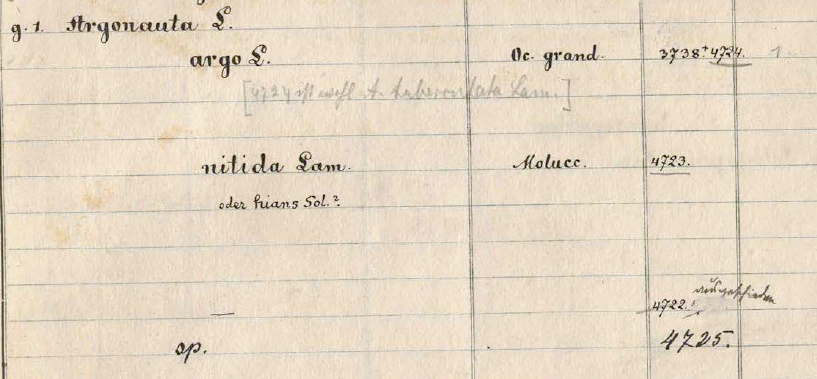 g. 1. Argonauta L.
argo L. Oc. grand. 3738 + 4724. 1.
[4724 ist wohl A. tuberculata Lam.]
nitida Lam. Molucc. 4723.
oder hians Sol.?
ausgeschieden
— 4722.!
sp. 4725.